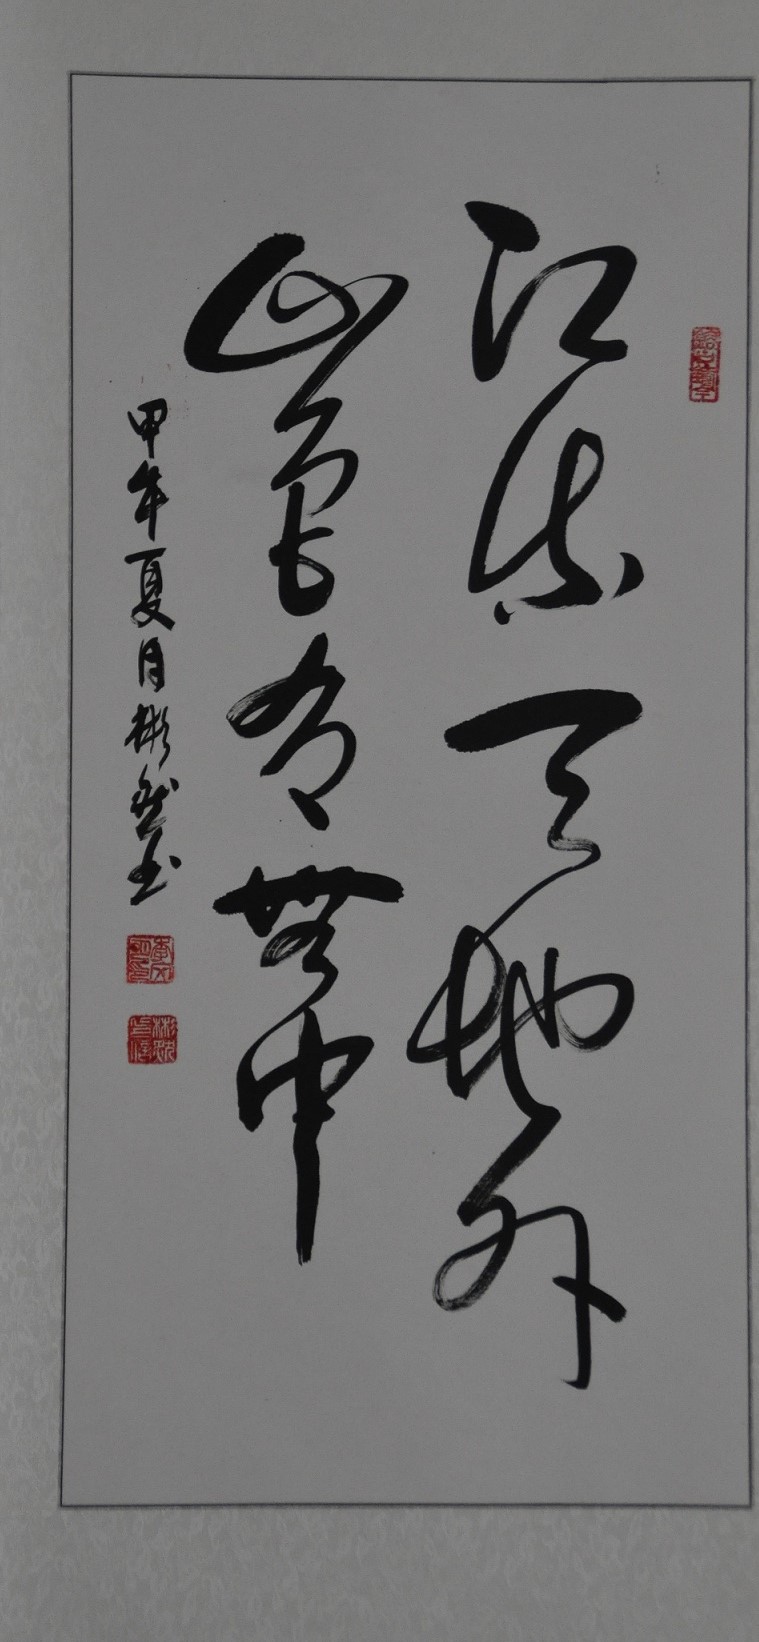 江流天地外
山色有無中
甲年夏月彬书